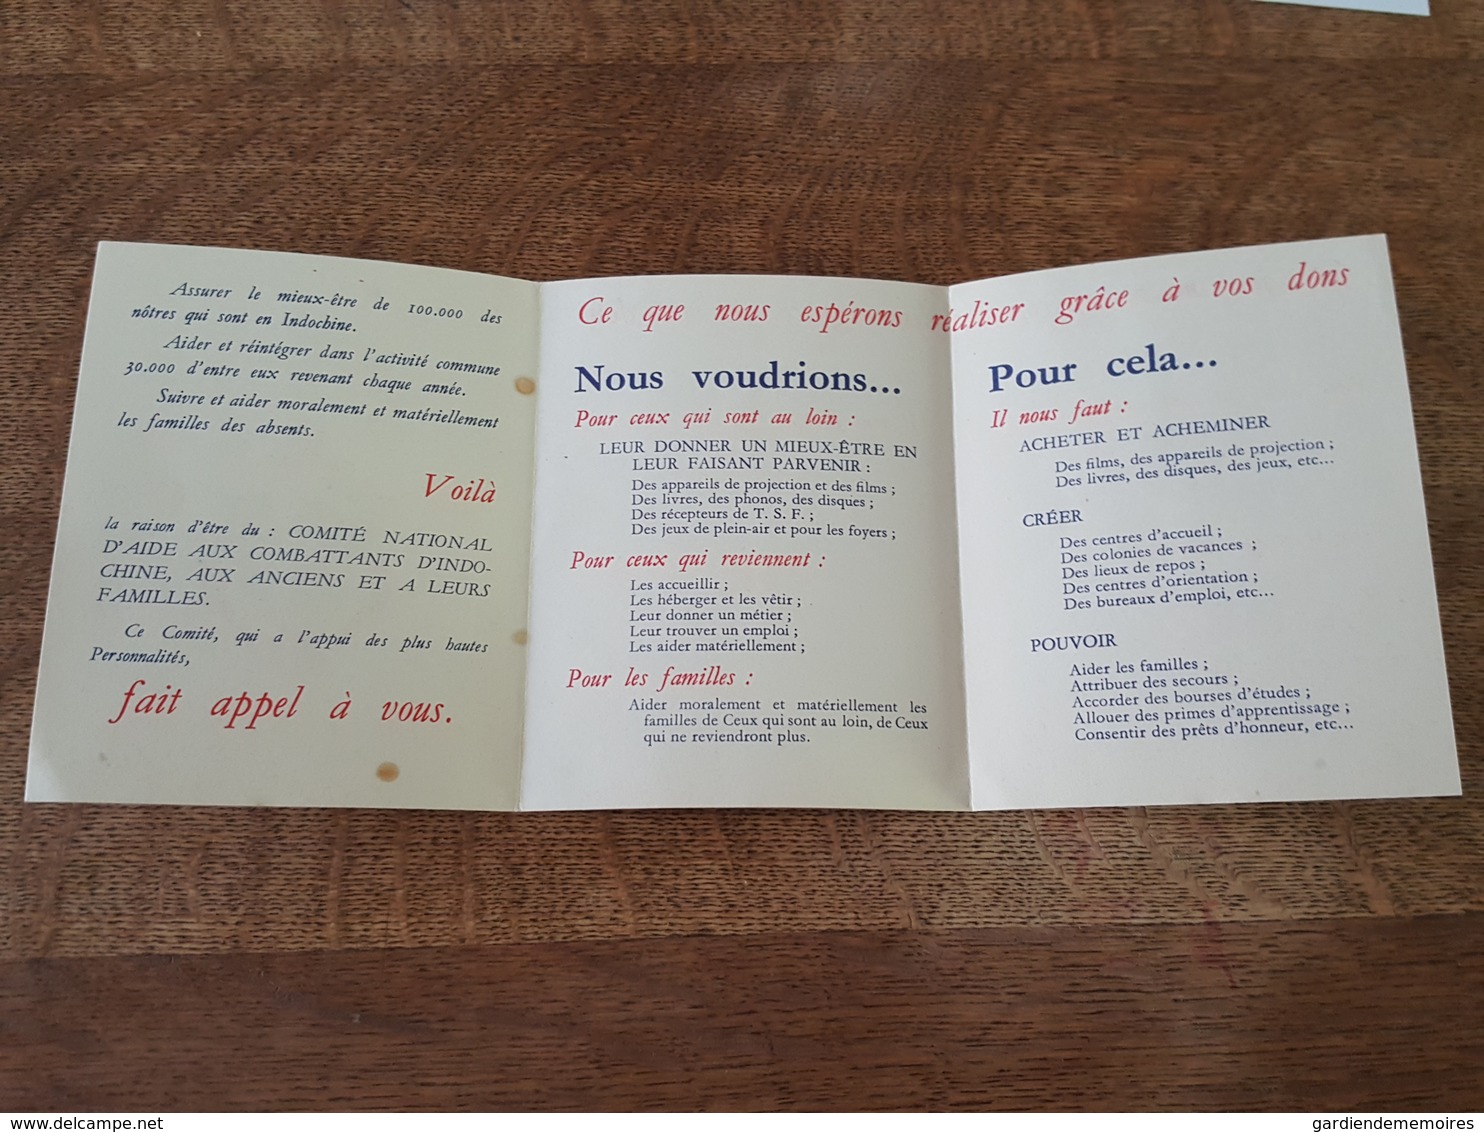 Assurer le mieux-être de 100.000 des
nôtres qui sont en Indochine.
Aider et réintégrer dans l'activité commune
30.000 d'entre eux revenant chaque année.
Suivre et aider moralement et matériellement
les familles des absents.
Voilà
la raison d'être du : COMITÉ NATIONAL
D'AIDE AUX COMBATTANTS D'INDO-
CHINE, AUX ANCIENS ET A LEURS
FAMILLES.
Ce Comité, qui a l'appui des plus hautes
Personnalités,
fait appel à vous.
Ce que nous espérons réaliser grâce à vos dons
Nous voudrions...
Pour ceux qui sont au loin :
LEUR DONNER UN MIEUX-ÊTRE EN
LEUR FAISANT PARVENIR :
Des appareils de projection et des films ;
Des livres, des phonos, des disques ;
Des récepteurs de T. S. F. ;
Des jeux de plein-air et pour les foyers ;
Pour ceux qui reviennent :
Les accueillir ;
Les héberger et les vêtir ;
Leur donner un métier ;
Leur trouver un emploi ;
Les aider matériellement ;
Pour les familles :
Aider moralement et matériellement les
familles de Ceux qui sont au loin, de Ceux
qui ne reviendront plus.
Pour cela...
Il nous faut :
ACHETER ET ACHEMINER
Des films, des appareils de projection ;
Des livres, des disques, des jeux, etc...
CRÉER
Des centres d'accueil ;
Des colonies de vacances ;
Des lieux de repos ;
Des centres d'orientation ;
Des bureaux d'emploi, etc...
POUVOIR
Aider les familles ;
Attribuer des secours ;
Accorder des bourses d'études ;
Allouer des primes d'apprentissage ;
Consentir des prêts d'honneur, etc...
©delcampe.net
gardiendememoires